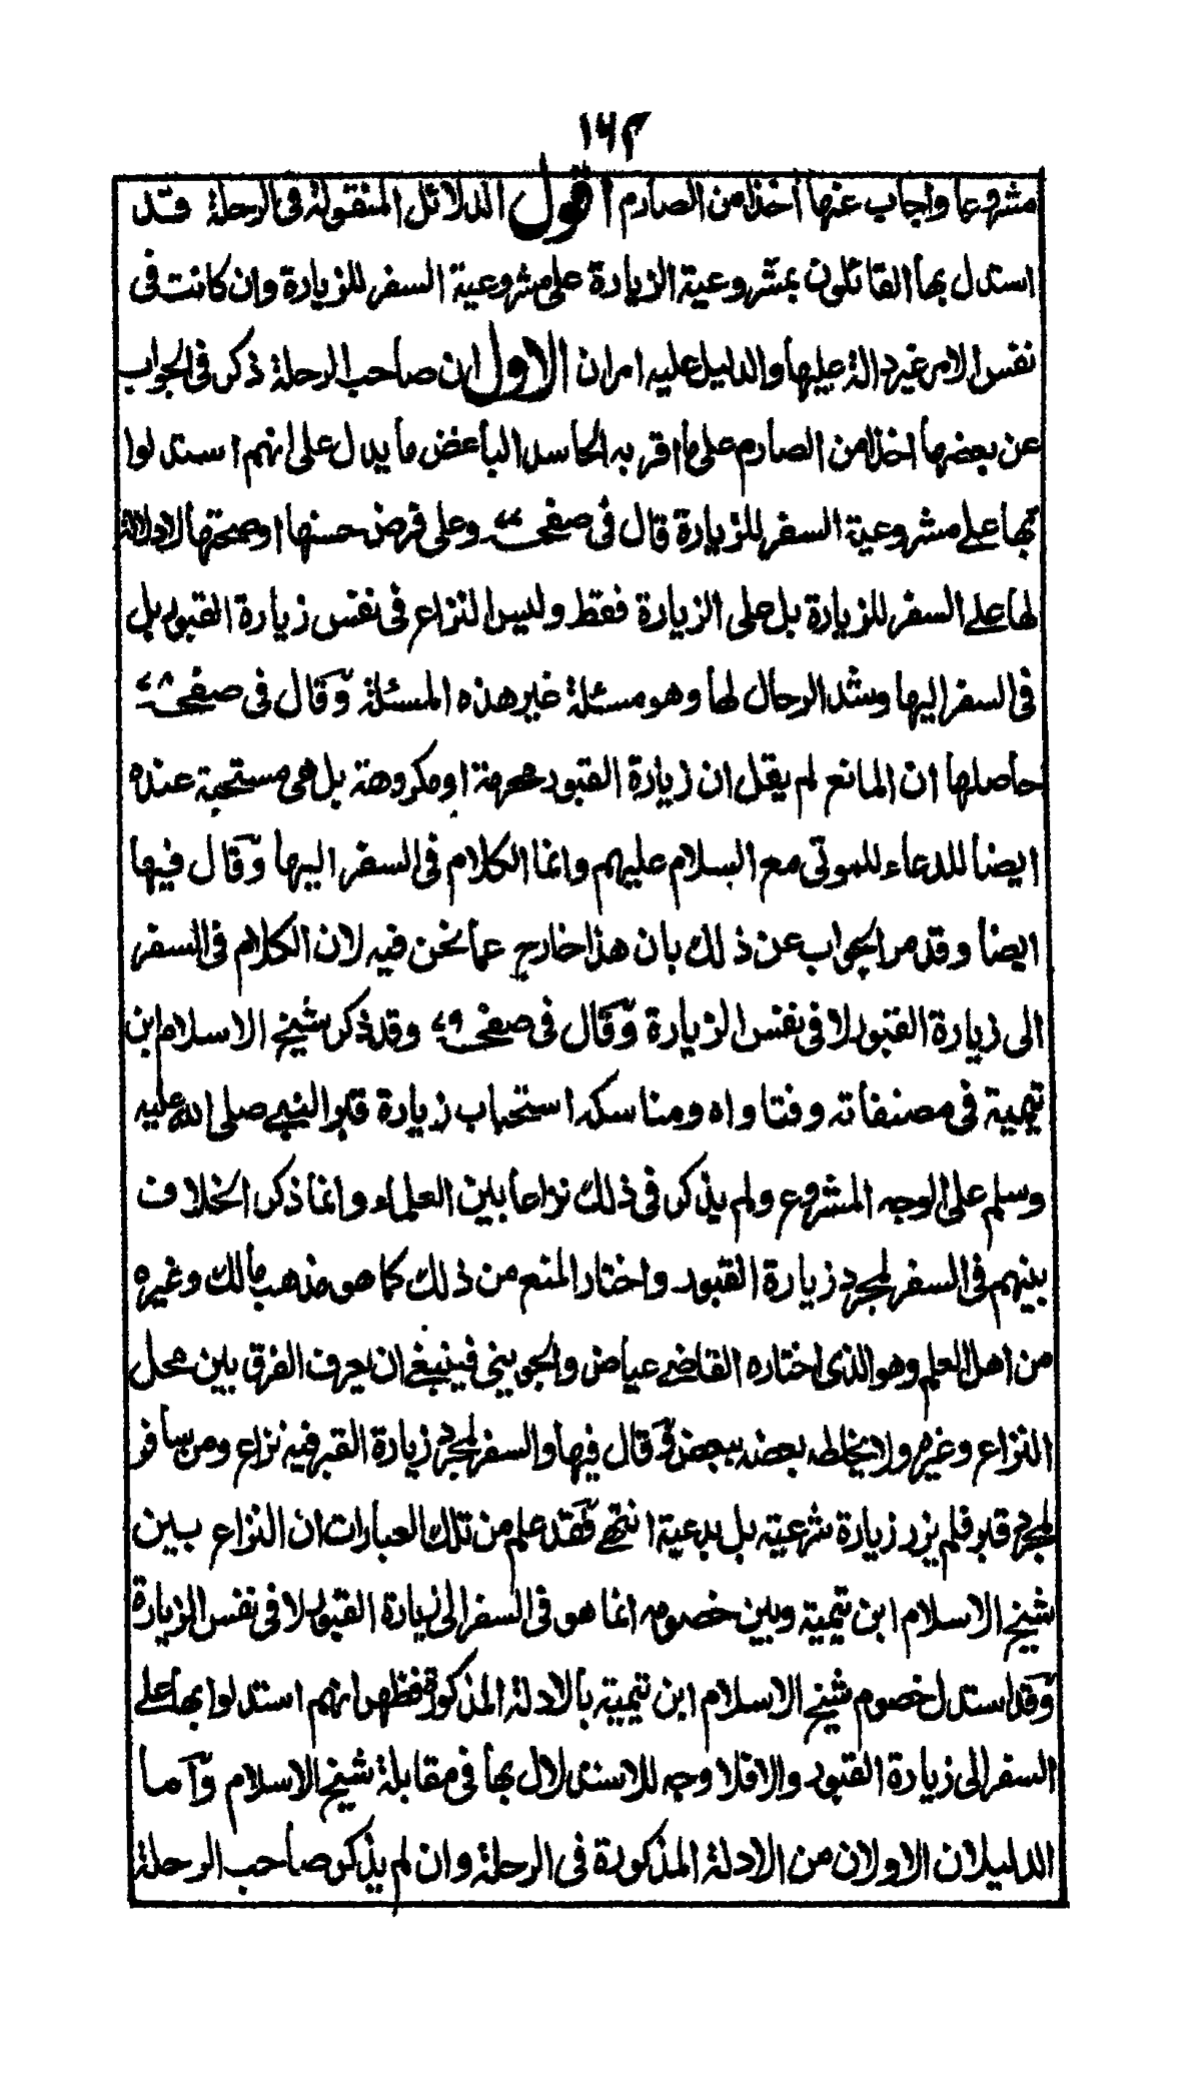 ١٦٣
مشروعا واجاب عنها أخذا من الصارم اقول الدلائل المنقولة فى الرحلة قد
استدل بها القائلون بمشروعية الزيارة على مشروعية السفر للزيارة وان كانت فى
نفس الامر غير دالة عليها والدليل عليه امران الاول ان صاحب الرحلة ذكر فى الجواب
عن بعضها اخذا من الصارم على ما اقر به الحاسد الباغض ما يدل على انهم استدلوا
بها على مشروعية السفر للزيارة قال فى صفحه وعلى فرض حسنها او صحتها لا دلالة
لها على السفر للزيارة بل على الزيارة فقط وليس النزاع فى نفس زيارة القبور بل
فى السفر اليها وشد الرحال لها وهو مسئلة غير هذه المسئلة وقال فى صفحه ٧٨
حاصلها ان المانع لم يقل ان زيارة القبور محرمة او مكروهة بل هى مستحبة عنده
ايضا للدعاء للموتى مع السلام عليهم وانما الكلام فى السفر اليها وقال فيها
ايضا وقد مر الجواب عن ذلك بان هذا خارج عما نحن فيه لان الكلام فى السفر
الى زيارة القبور لا فى نفس الزيارة وقال فى صفحه ٧٩ وقد ذكر شيخ الاسلام ابن
تيمية فى مصنفاته وفتاواه ومناسكه استحباب زيارة قبر النبى صلى الله عليه
وسلم على الوجه المشروع ولم يذكر فى ذلك نزاعا بين العلماء وانما ذكر الخلاف
بينهم فى السفر لمجرد زيارة القبور واختار المنع من ذلك كما هو مذهب مالك وغيره
من اهل العلم وهو الذى اختاره القاضى عياض والجوينى فينبغى ان يعرف الفرق بين محل
النزاع وغيره ولا يخلط بعضه ببعض وقال فيها والسفر لمجرد زيارة القبر فيه نزاع ومن سافر
لمجرد قبر فلم يزر زيارة شرعية بل بدعية انتهى فقد علم من تلك العبارات ان النزاع بين
شيخ الاسلام ابن تيمية وبين خصومه انما هو فى السفر الى زيارة القبور لا فى نفس الزيارة
وقد استدل خصوم شيخ الاسلام ابن تيمية بالادلة المذكورة فظهر انهم استدلوا بها على
السفر الى زيارة القبور والا فلا وجه للاستدلال بها فى مقابلة شيخ الاسلام وآما
الدليلان الاولان من الادلة المذكورة فى الرحلة وان لم يذكر صاحب الرحلة